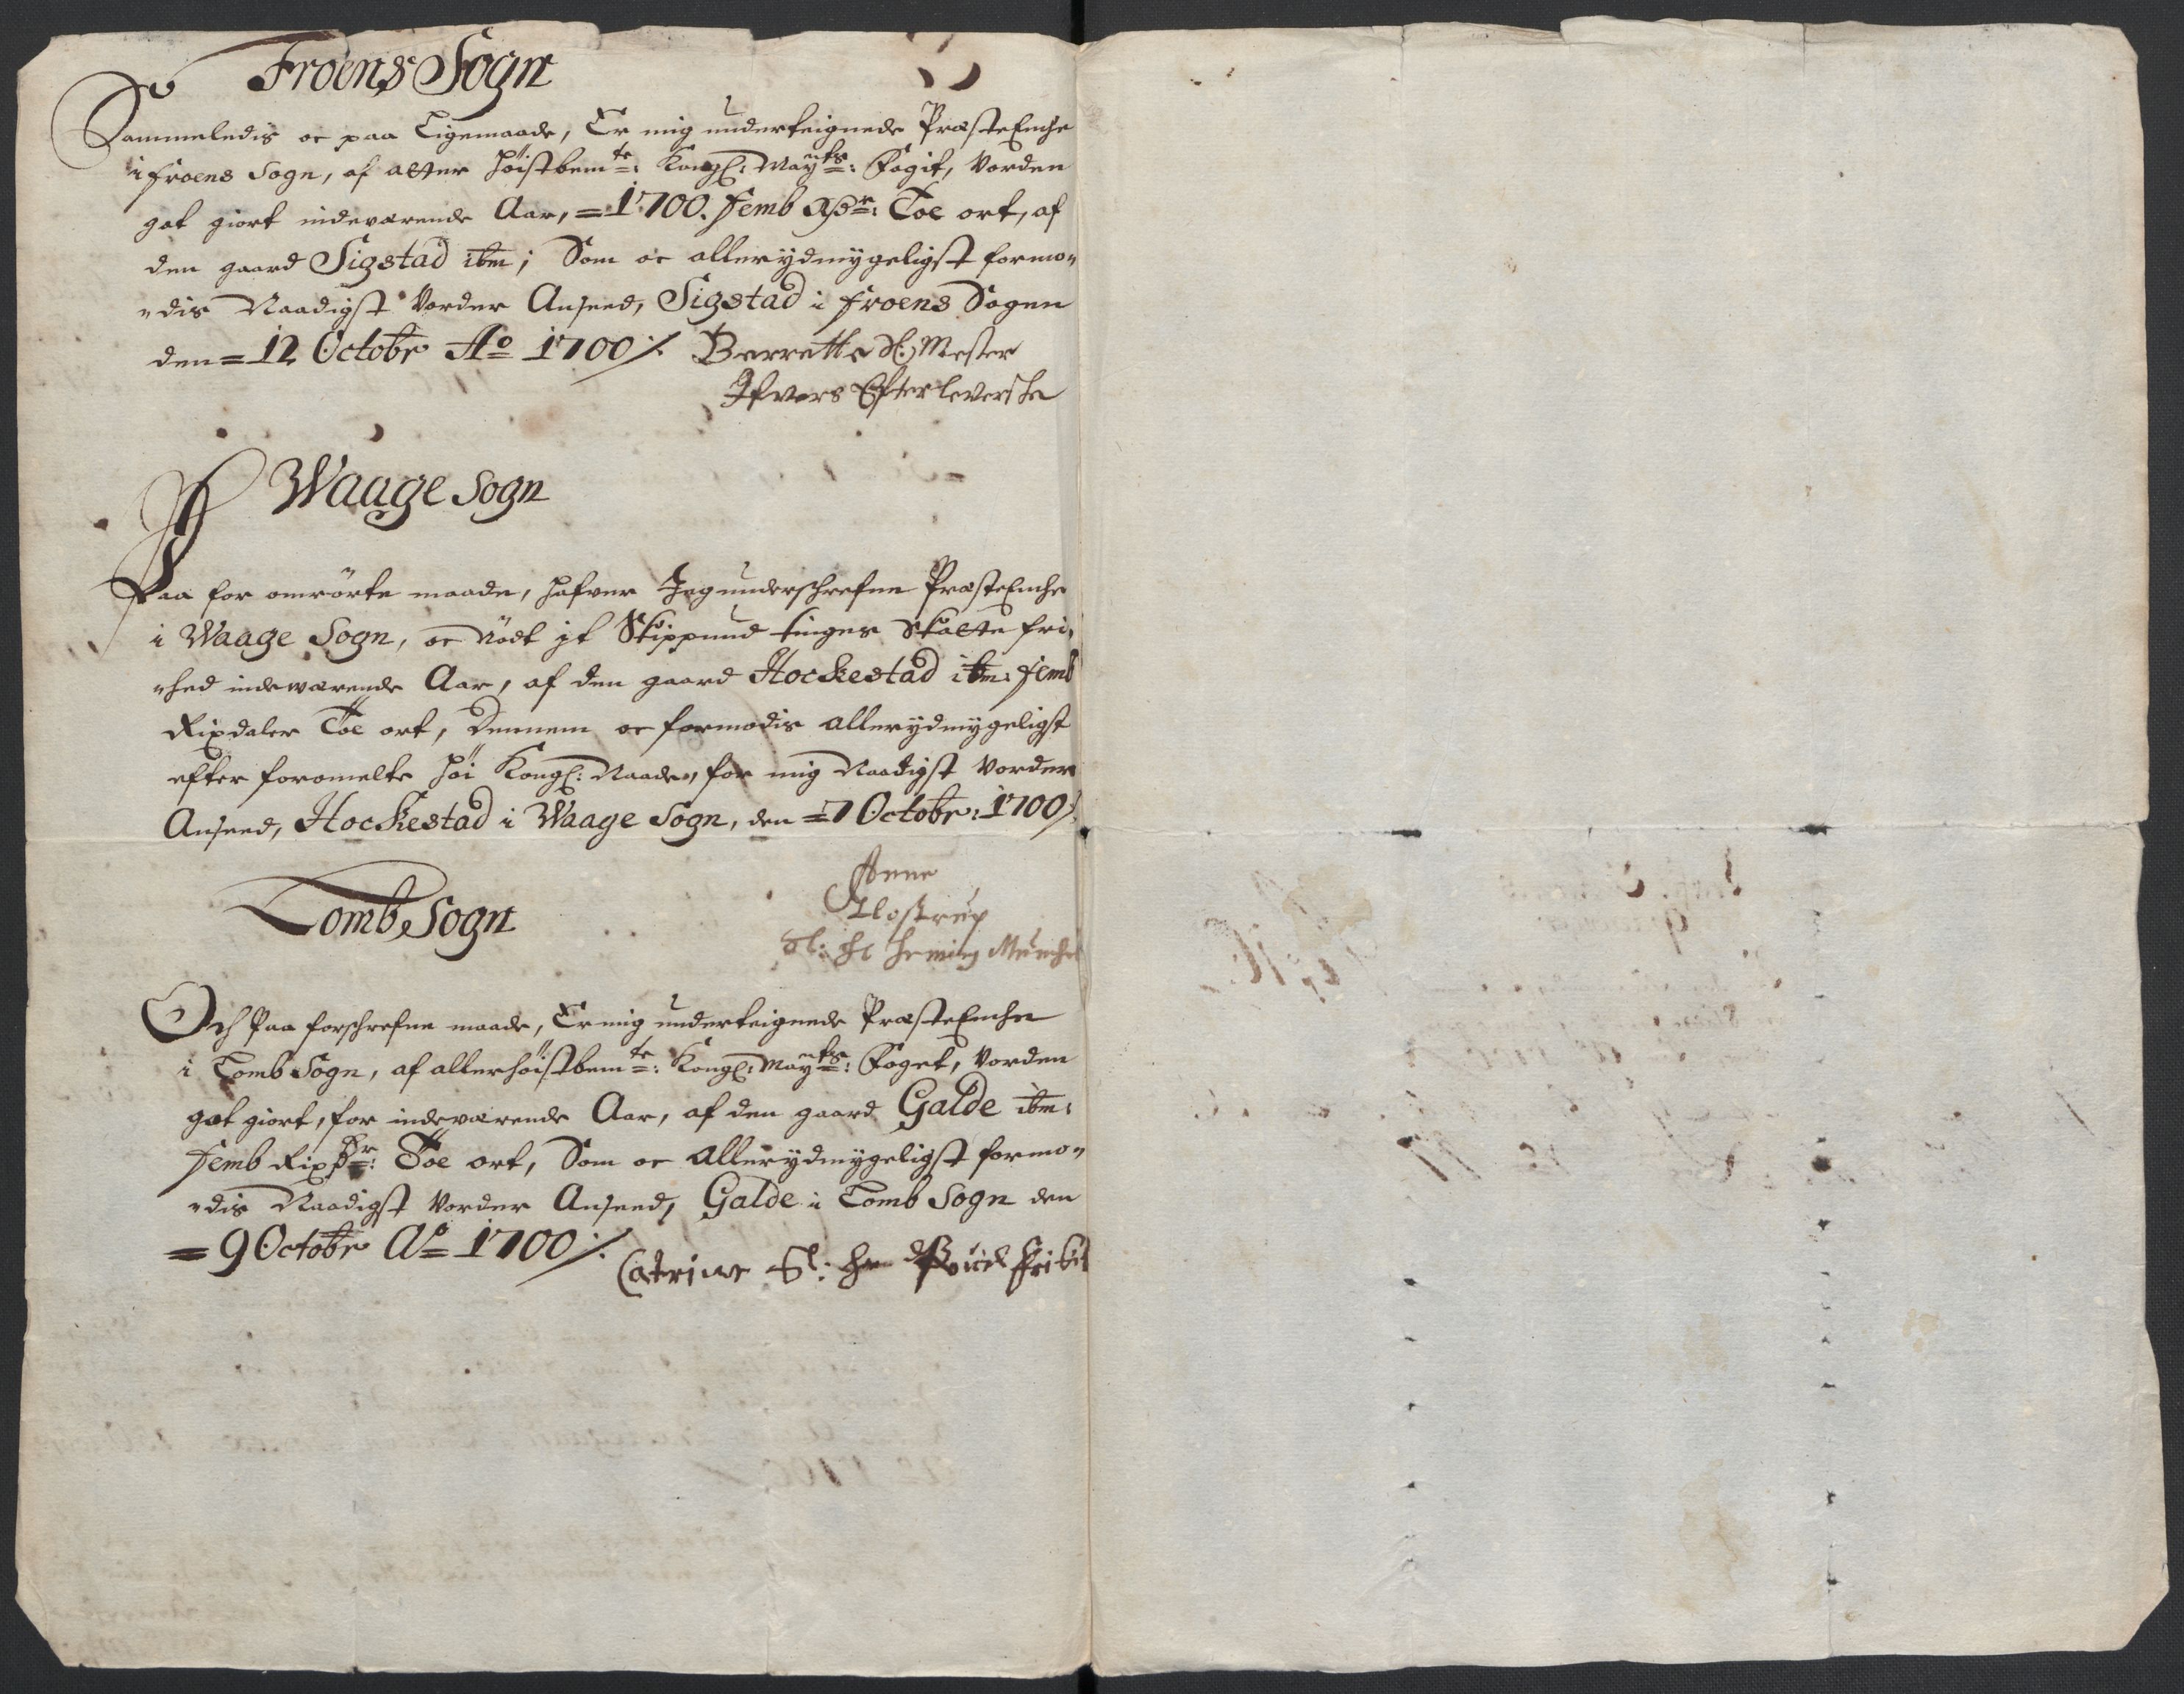 Froens Sogn
Sammeledis oc paa Ligemaade, Er mig underteignede PræsteEnche
i Froens Sogn, af aller Höistbemte: Kongl: Mayts: Fogit, Vorden
got giort indeværende Aar, =1700. Femb Rdr: Toe ort, af
den gaard Sigstad ibm; Som oc allerydmygeligst formo„
„dis Naadigst Vorder Anseed, Sigstad i Froens Sogen
den = 12 Octobr Ao 1700 ⁒ Berrette Sl: Mester
Ifvers Efterleversche
Waage Sogn
Paa for omrörte maade, hafver Jeg underschrefne PræsteEnche
i Waage Sogn, oc nödt it Skippund tinges Skatte fri„
„hed indewærende Aar, af den gaard Hockestad ibm: Femb
Rixdaler Toe ort, Dennem oc formodis allerydmygeligst
efter foromelte höi Kongl: Naade, for mig Naadigst Vorder
Anseed, Hockestad i Waage Sogn, den =7 Octobr: 1700 ⁒
Anne
Klostrup
Sl: Hr Heming Munches
Lomb Sogn
Och Paa forschrefne maade, Er mig underteignede PræsteEnche
i Lomb Sogn, af allerhöistbemte: Kongl: Mayts: Foget, Vorden
got giort, for indeværende Aar, af den gaard Galde ibm:
Femb Rixdr: Toe ort, Som oc Allerydmygeligst formo„
„dis Naadigst Vorder Anseed, Galde i Lomb Sogn den
= 9 Octobr Ao 1700 ⁒
Catrine Sl: Hr